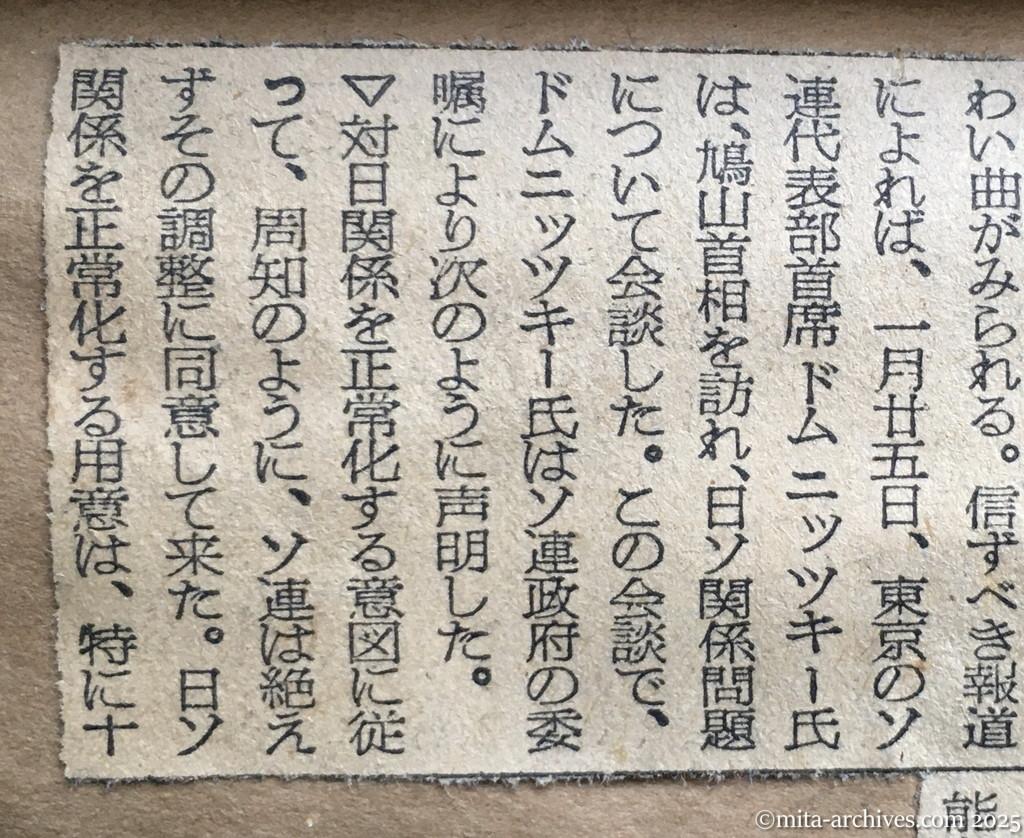 わい曲がみられる。信ずべき報道
によれば、一月廿五日、東京のソ
連代表部首席ドムニッツキー氏
は、鳩山首相を訪れ、日ソ関係問題
について会談した。この会談で、
ドムニッツキー氏はソ連政府の委
嘱により次のように声明した。
▽対日関係を正常化する意図に従
って、周知のように、ソ連は絶え
ずその調整に同意して来た。日ソ
関係を正常化する用意は、特に十
©mita-archives.com 2025